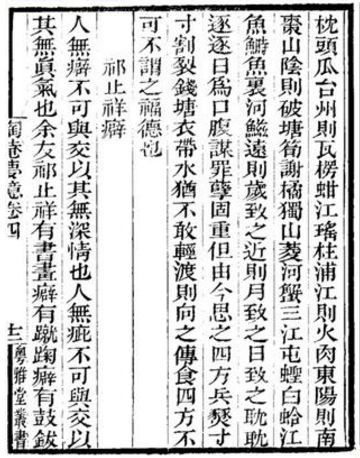 枕頭瓜台州則瓦楞蚶江瑤柱浦江則火肉東陽則南
棗山陰則破塘筍謝橘獨山菱河蟹三江屯蟶白蛤江
魚鰣魚裏河鰦遠則歲致之近則月致之日致之耽耽
逐逐日爲口腹謀罪孽固重但由今思之四方兵燹寸
寸割裂錢塘衣帶水猶不敢輕渡則向之傳食四方不
可不謂之福德也
祁止祥癖
人無癖不可與交以其無深情也人無疵不可與交以
其無眞氣也余友祁止祥有書畫癖有蹴踘癖有鼓鈸
陶菴夢憶卷四
十二
粵雅堂叢書